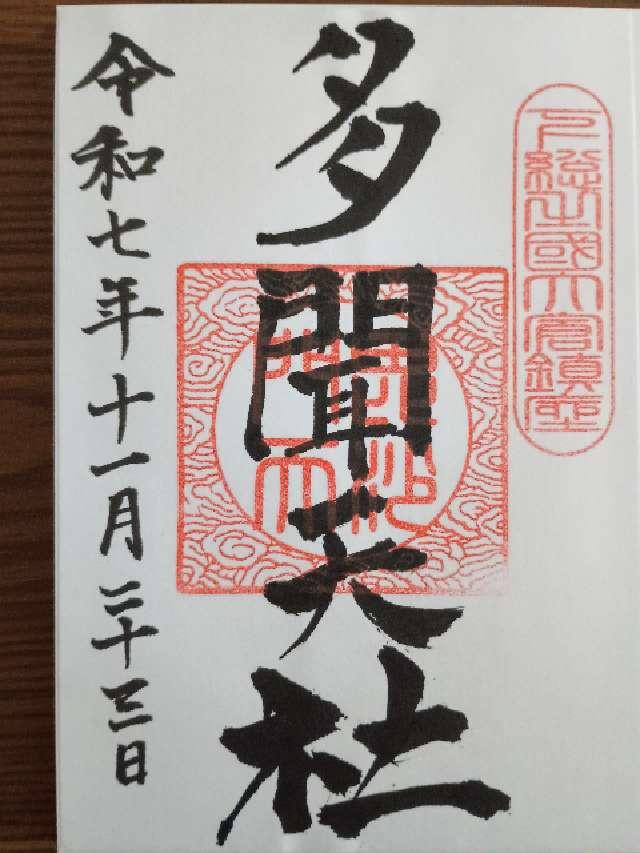 下総之國大倉鎮座
多聞天社
令和七年十一月二十三日